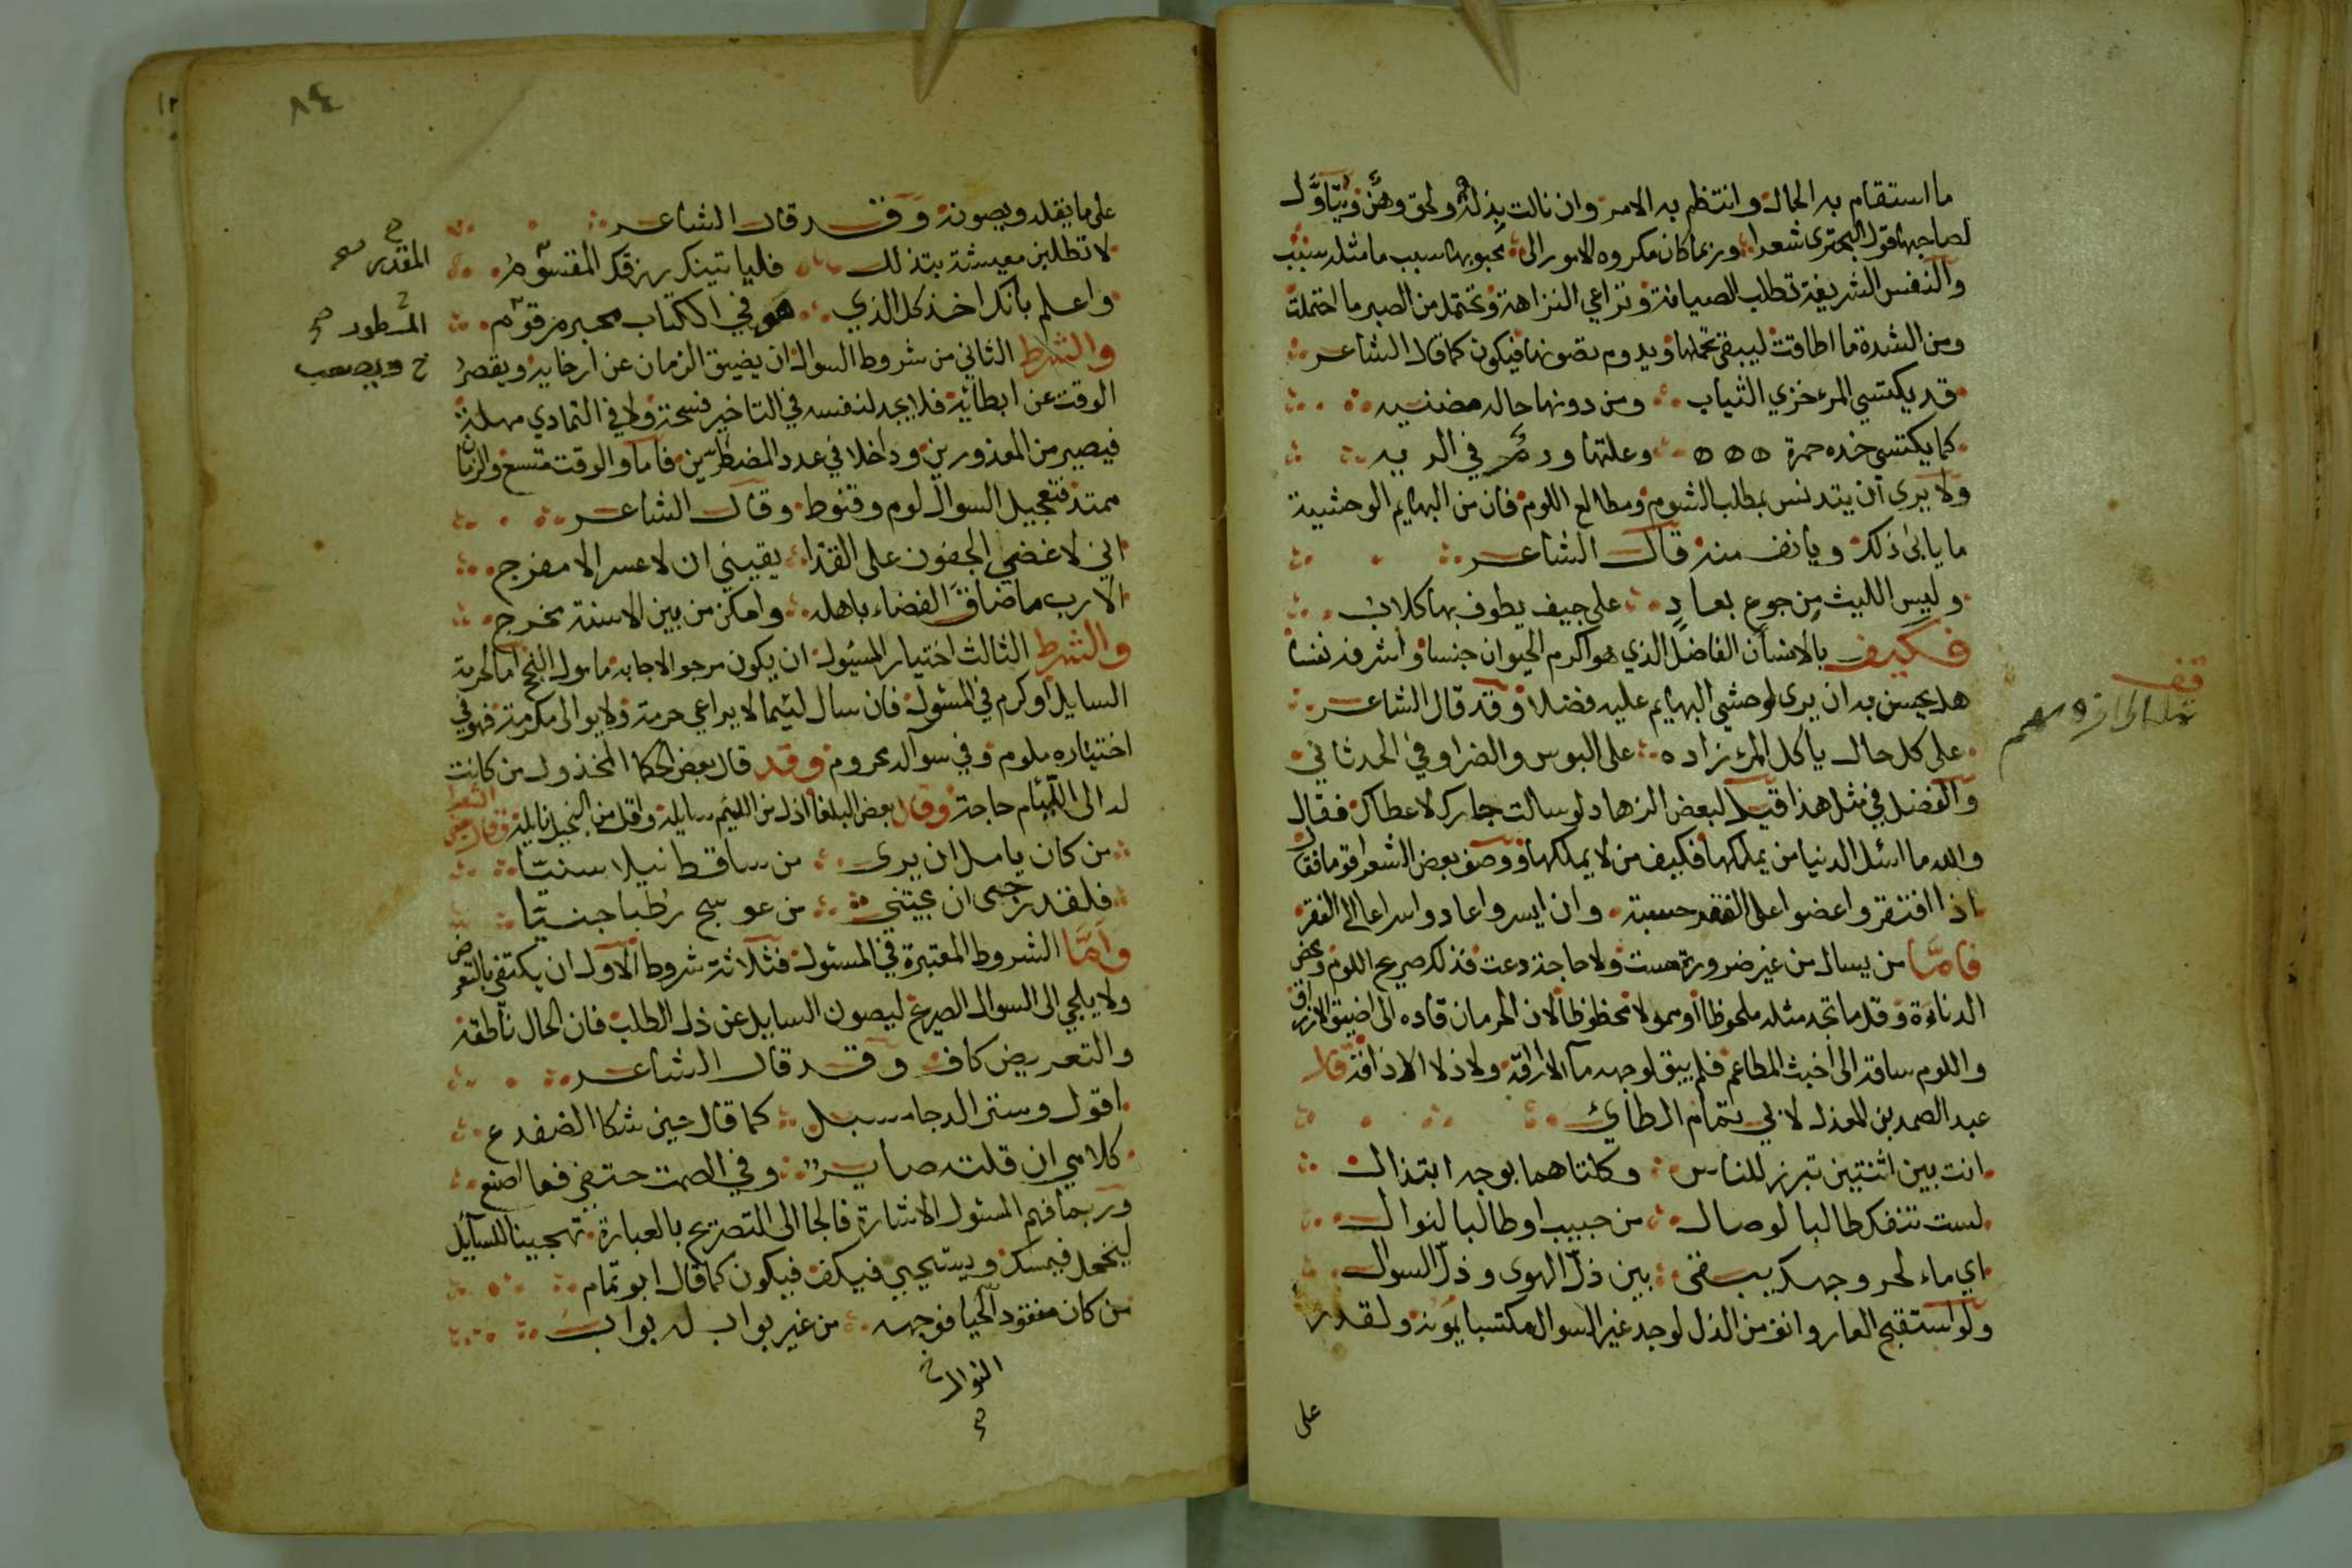 ما استقام به الحال وانتظم به الامر وان نالت بذلة ولحق وهن ويتاول
لصاحبها قول البحتري شعرا وربما كان مكروه الامور الى محبوبها سبب ما مثله سبب
والنفس الشريفة تطلب الصيانة وتراعي النزاهة وتحتمل من الصبر ما احتملت
ومن الشدة ما اطاقت ليبقى تحملها ويدوم تصونها فيكون كما قال الشاعر
قد يكتسي المرء خزي الثياب ومن دونها حاله مضنيه
كما يكتسي خده حمرة ٥٥٥ وعلتها ورم في الريه
ولا يرى ان يتدنس بمطلب الشوم ومطالع اللوم فان من البهايم الوحشية
ما يابى ذلك ويانف منه قال الشاعر
وليس الليث من جوع بعاد على جيف يطوف بها كلاب
فكيف بالانسان الفاضل الذي هو اكرم الحيوان جنسا واشرفه نفسا
هل يحسن به ان يرى لوحشي البهايم عليه فضلا وقد قال الشاعر
على كل حال ياكل المرء زاده على البوس والضراوفي الحدثاني
والفضل في مثل هذا قيل لبعض الزهاد لو سالت جارك لاعطاك فقال
والله ما اسئل الدنيا من يملكها فكيف من لا يملكها ووصف بعض الشعرا قوما فقال
اذا افتقروا عضوا على الفقر حسبة وان ايسروا عادوا سراعا الى الفقر
فاما من يسال من غير ضرورة مست ولا حاجة دعت فذلك صريح اللوم ومحض
الدناءة وقل ما تجد مثله ملحوظا او ممولا محظوظا لان الحرمان قاده الى اضيق الارزاق
واللوم ساقه الى اخبث المطاعم فلم يبق لوجهه ماء الا اراقه ولا ذلا الا ذاقه قال
عبد الصمد بن المعذل لابي تمام الطائي
انت بين اثنتين تبرز للناس وكلتاهما بوجه ابتذال
لست تنفك طالبا لوصال من حبيب او طالبا لنوال
اي ماء لحر وجهك يبقى بين ذل الهوى وذل السوال
ولو استقبح العار وانف من الذل لوجد غير السوال مكتسبا يمونه ولقدر
على
قف
٨٤
على ما يقله ويصونه وقد قال الشاعر
لا تطلبن معيشة بتذلل فلياتينك رزقك المقسوم
واعلم بانك اخذ كل الذي هو في الكتاب محبر مرقوم
والشرط الثاني من شروط السوال ان يضيق الزمان عن ارخايه ويقصر
الوقت عن ابطائه فلا يجد لنفسه في التاخير فسحة ولا في التمادي مهلة
فيصير من المعذورين وداخلا في عدد المضطرين فاما والوقت متسع والزمان
ممتد فتعجيل السوال لوم وقنوط وقال الشاعر
اني لاغضي الجفون على القذا يقيني ان لا عسر الا مفرج
الا رب ما ضاق الفضاء باهله وامكن من بين الاسنة مخرج
والشرط الثالث اختيار المسئول ان يكون مرجو الاجابة مامول النجح اما لحرمة
السايل او كرم في المسئول فان سال لئيما لا يراعي حرمة ولا يوالى مكرمة فهو في
اختياره ملوم وفي سواله محروم وقد قال بعض الحكما المخذول من كانت
له الى اللئام حاجة وقال بعض البلغا اذل من اللئيم سايله واقل من البخيل نايله وقال بعض الشعرا
من كان يامل ان يرى من ساقط نيلا سنيا
فلقد رجى ان يجتني من عوسج رطبا جنيا
واما الشروط المعتبرة في المسئول فثلاثة شروط الاول ان يكتفي بالتعريض
ولا يلجي الى السوال الصريح ليصون السايل عن ذل الطلب فان الحال ناطقه
والتعريض كاف وقد قال الشاعر
اقول وستر الدجا مسبل كما قال حين شكا الضفدع
كلامي ان قلته صاير وفي الصمت حتفي فما اصنع
وربما فهم المسئول الاشارة فالجا الى التصريح بالعبارة تهجينا للسايل
ليخجل فيمسك ويستحيي فيكف فيكون كما قال ابو تمام
من كان مفقود الحيا فوجهه من غير بواب له بواب
المقدر صح
المسطور صح
خ ويصعب
النوال خ